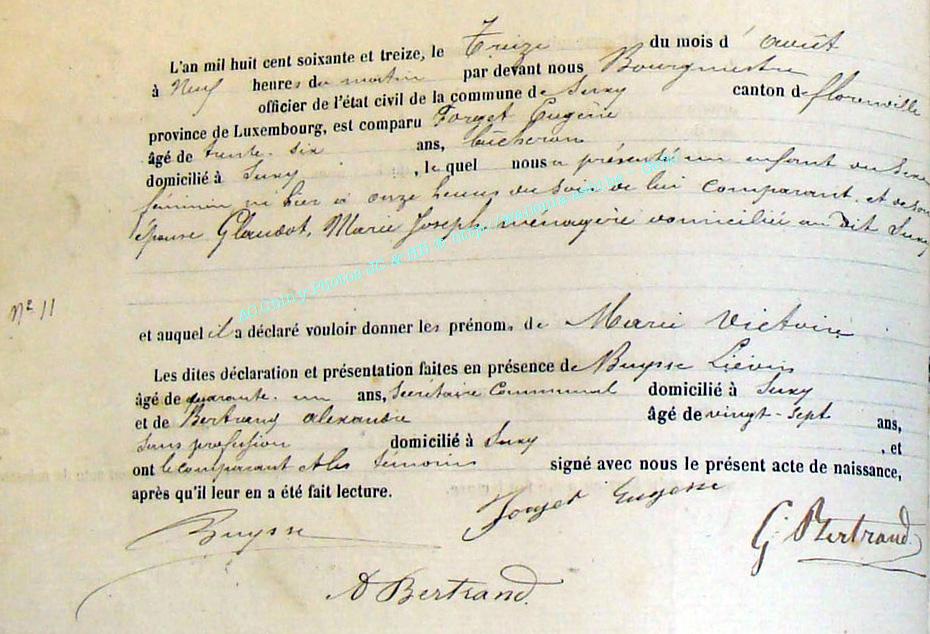 L'an mil huit cent soixante et treize, le Treize du mois d'août
à Neuf heures du matin par devant nous Bourgmestre
officier de l'état civil de la commune de Suxy canton de florenville
province de Luxembourg, est comparu Forget Eugène
âgé de trente-six ans, bûcheron
domicilié à Suxy, lequel nous a présenté un enfant du sexe
féminin né hier à onze heures du soir de lui comparant, et de son
épouse Glaudot, Marie Joseph, ménagère domiciliée au dit Suxy
AC Chiny-Photos
N° 11
et auquel il a déclaré vouloir donner les prénoms de Marie Victoire
Les dites déclaration et présentation faites en présence de Buysse Liévin
âgé de quarante-un ans, Secrétaire Communal domicilié à Suxy
et de Bertrand alexandre âgé de vingt-sept ans,
sans profession domicilié à Suxy, et
ont le comparant et les témoins signé avec nous le présent acte de naissance,
après qu'il leur en a été fait lecture.
Buysse Forget Eugene G. Bertrand
A Bertrand